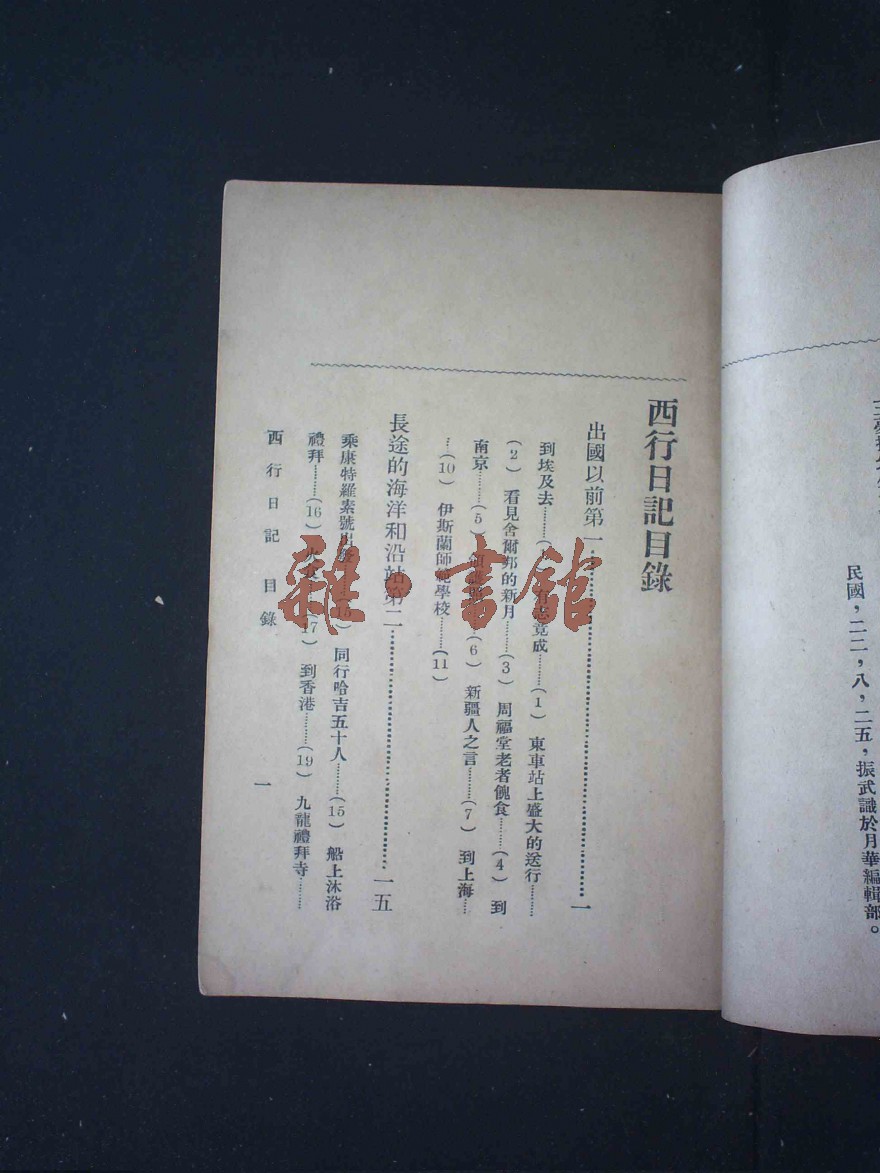 民國，二二，八，二五，振武識於月華編輯部。
西行日記目錄
出國以前第一……一
到埃及去………( 有志竟成………(1) 東車站上盛大的送行………
(2) 看見舍爾邦的新月………(3) 周福堂老者餽食………(4) 到
南京………(5) (6) 新疆人之言………(7) 到上海……
…(10) 伊斯蘭師範學校………(11)
長途的海洋和沿站第二……一五
乘康特羅素號出發 同行哈吉五十人………(15) 船上沐浴
禮拜………(16) (17) 到香港………(19) 九龍禮拜寺………
西行日記 目錄 一
雜·書館